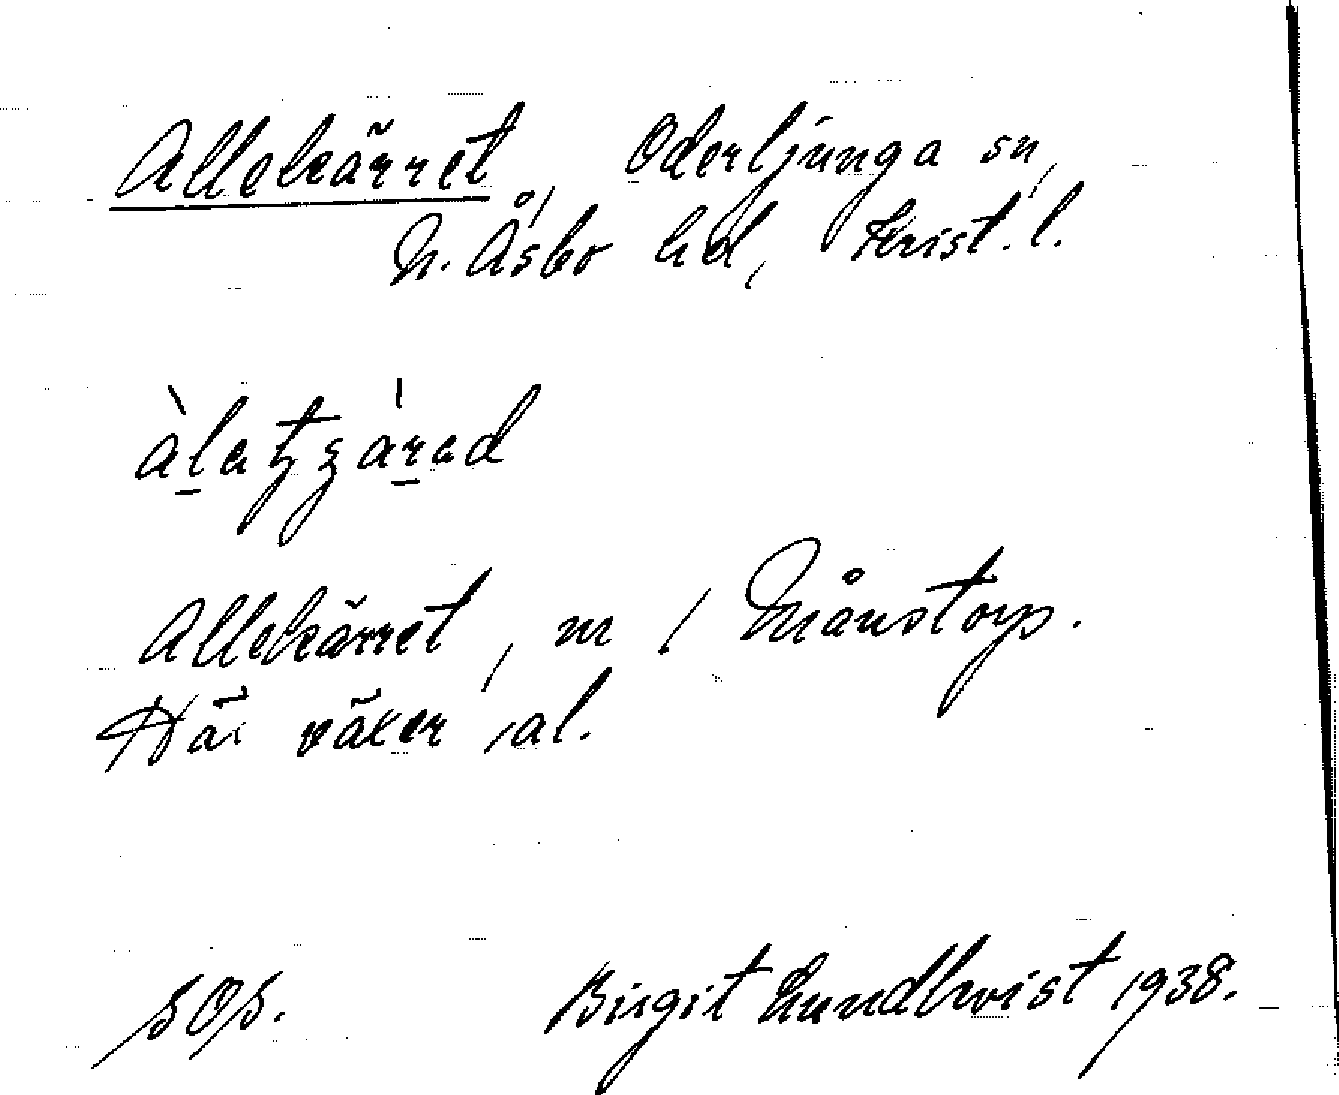 Allekärret, Oderljunga sn,
N. Åsbo hd, Krist. l.
Allekärret, m / Månstorp.
Här växer al.
SOS. Birgit Lundkvist 1938.